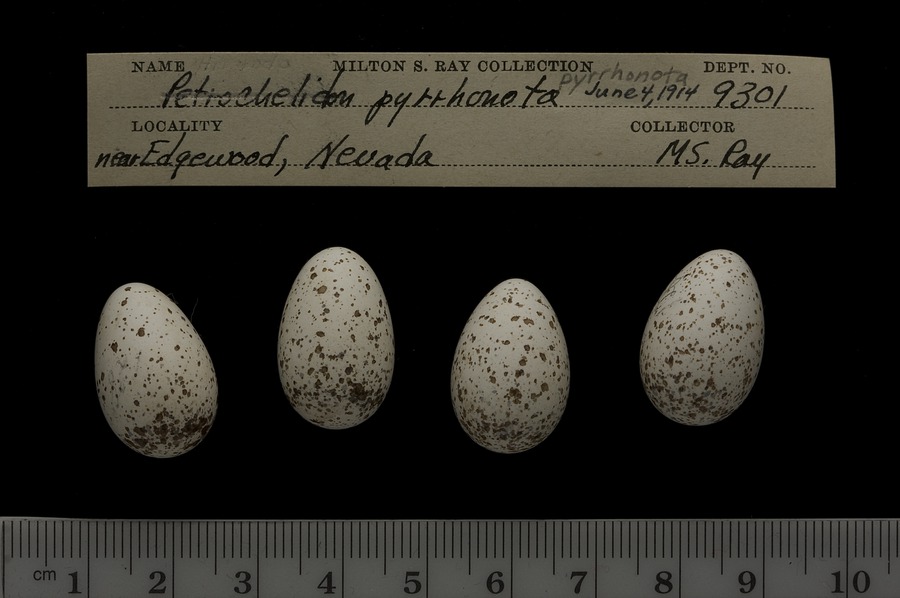 NAME MILTON S. RAY COLLECTION DEPT. NO.
Petrochelidon pyrrhonota pyrrhonota June 4, 1914 9301
LOCALITY COLLECTOR
near Edgewood, Nevada M.S. Ray
cm 1 2 3 4 5 6 7 8 9 10